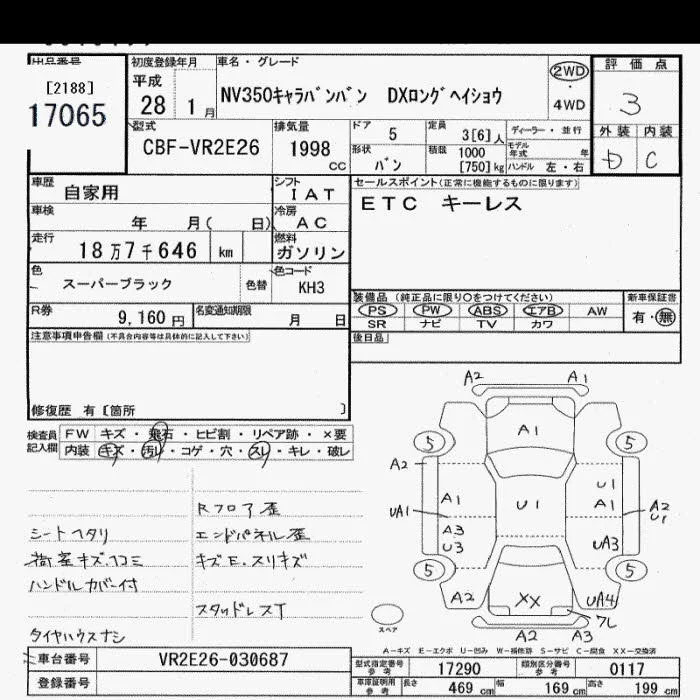 出品番号
[2188]
17065
初度登録年月
平成
28 1月
車名・グレード
NV350キャラバンバン DXロングヘイショウ
2WD
・
4WD
評価点
3
外装 内装
D C
型式
CBF-VR2E26
排気量
1998
CC
ドア 5
定員 3[6]人
ディーラー・並行
形状
バン
積載 1000
[750]kg
モデル年式 年
ハンドル 左・右
車歴
自家用
シフト
IAT
車検
年 月( 日)
冷房
AC
走行
18万7千646 km
燃料
ガソリン
色
スーパーブラック
色替
色コード
KH3
R券
9,160円
名変通知期限
月 日
セールスポイント(正常に機能するものに限ります)
ETC キーレス
装備品 (純正品に限り○をつけてください)
PS PW ABS エアB AW
SR ナビ TV カワ
新車保証書
有・無
後日品
注意事項申告欄(不具合内容等は具体的に記入して下さい)
修復歴 有〔箇所 〕
検査員
記入欄
FW キズ・飛石・ヒビ割・リペア跡・×要
内装 キズ・汚レ・コゲ・穴・スレ・キレ・破レ
Rフロア歪
シートヘタリ
エンドパネル歪
荷室キズ.凹コミ
キズE.スリキズ
ハンドルカバー付
スタッドレスT
タイヤハウスナシ
A2 A1
5 A1 5
A2
U1
A1 U1 A1
UA1
A2
U1
A3
U3
UA3
5 5
A2 XX UA4
フレ
A2 A3
スペア
A-キズ E-エクボ U-凹み W-補修跡 S-サビ C-腐食 XX-交換済
車台番号
VR2E26-030687
登録番号
型式指定番号
参考
17290
類別区分番号
参考
0117
車庫証明用
参考
長さ 469 cm 幅 169 cm 高さ 199 cm